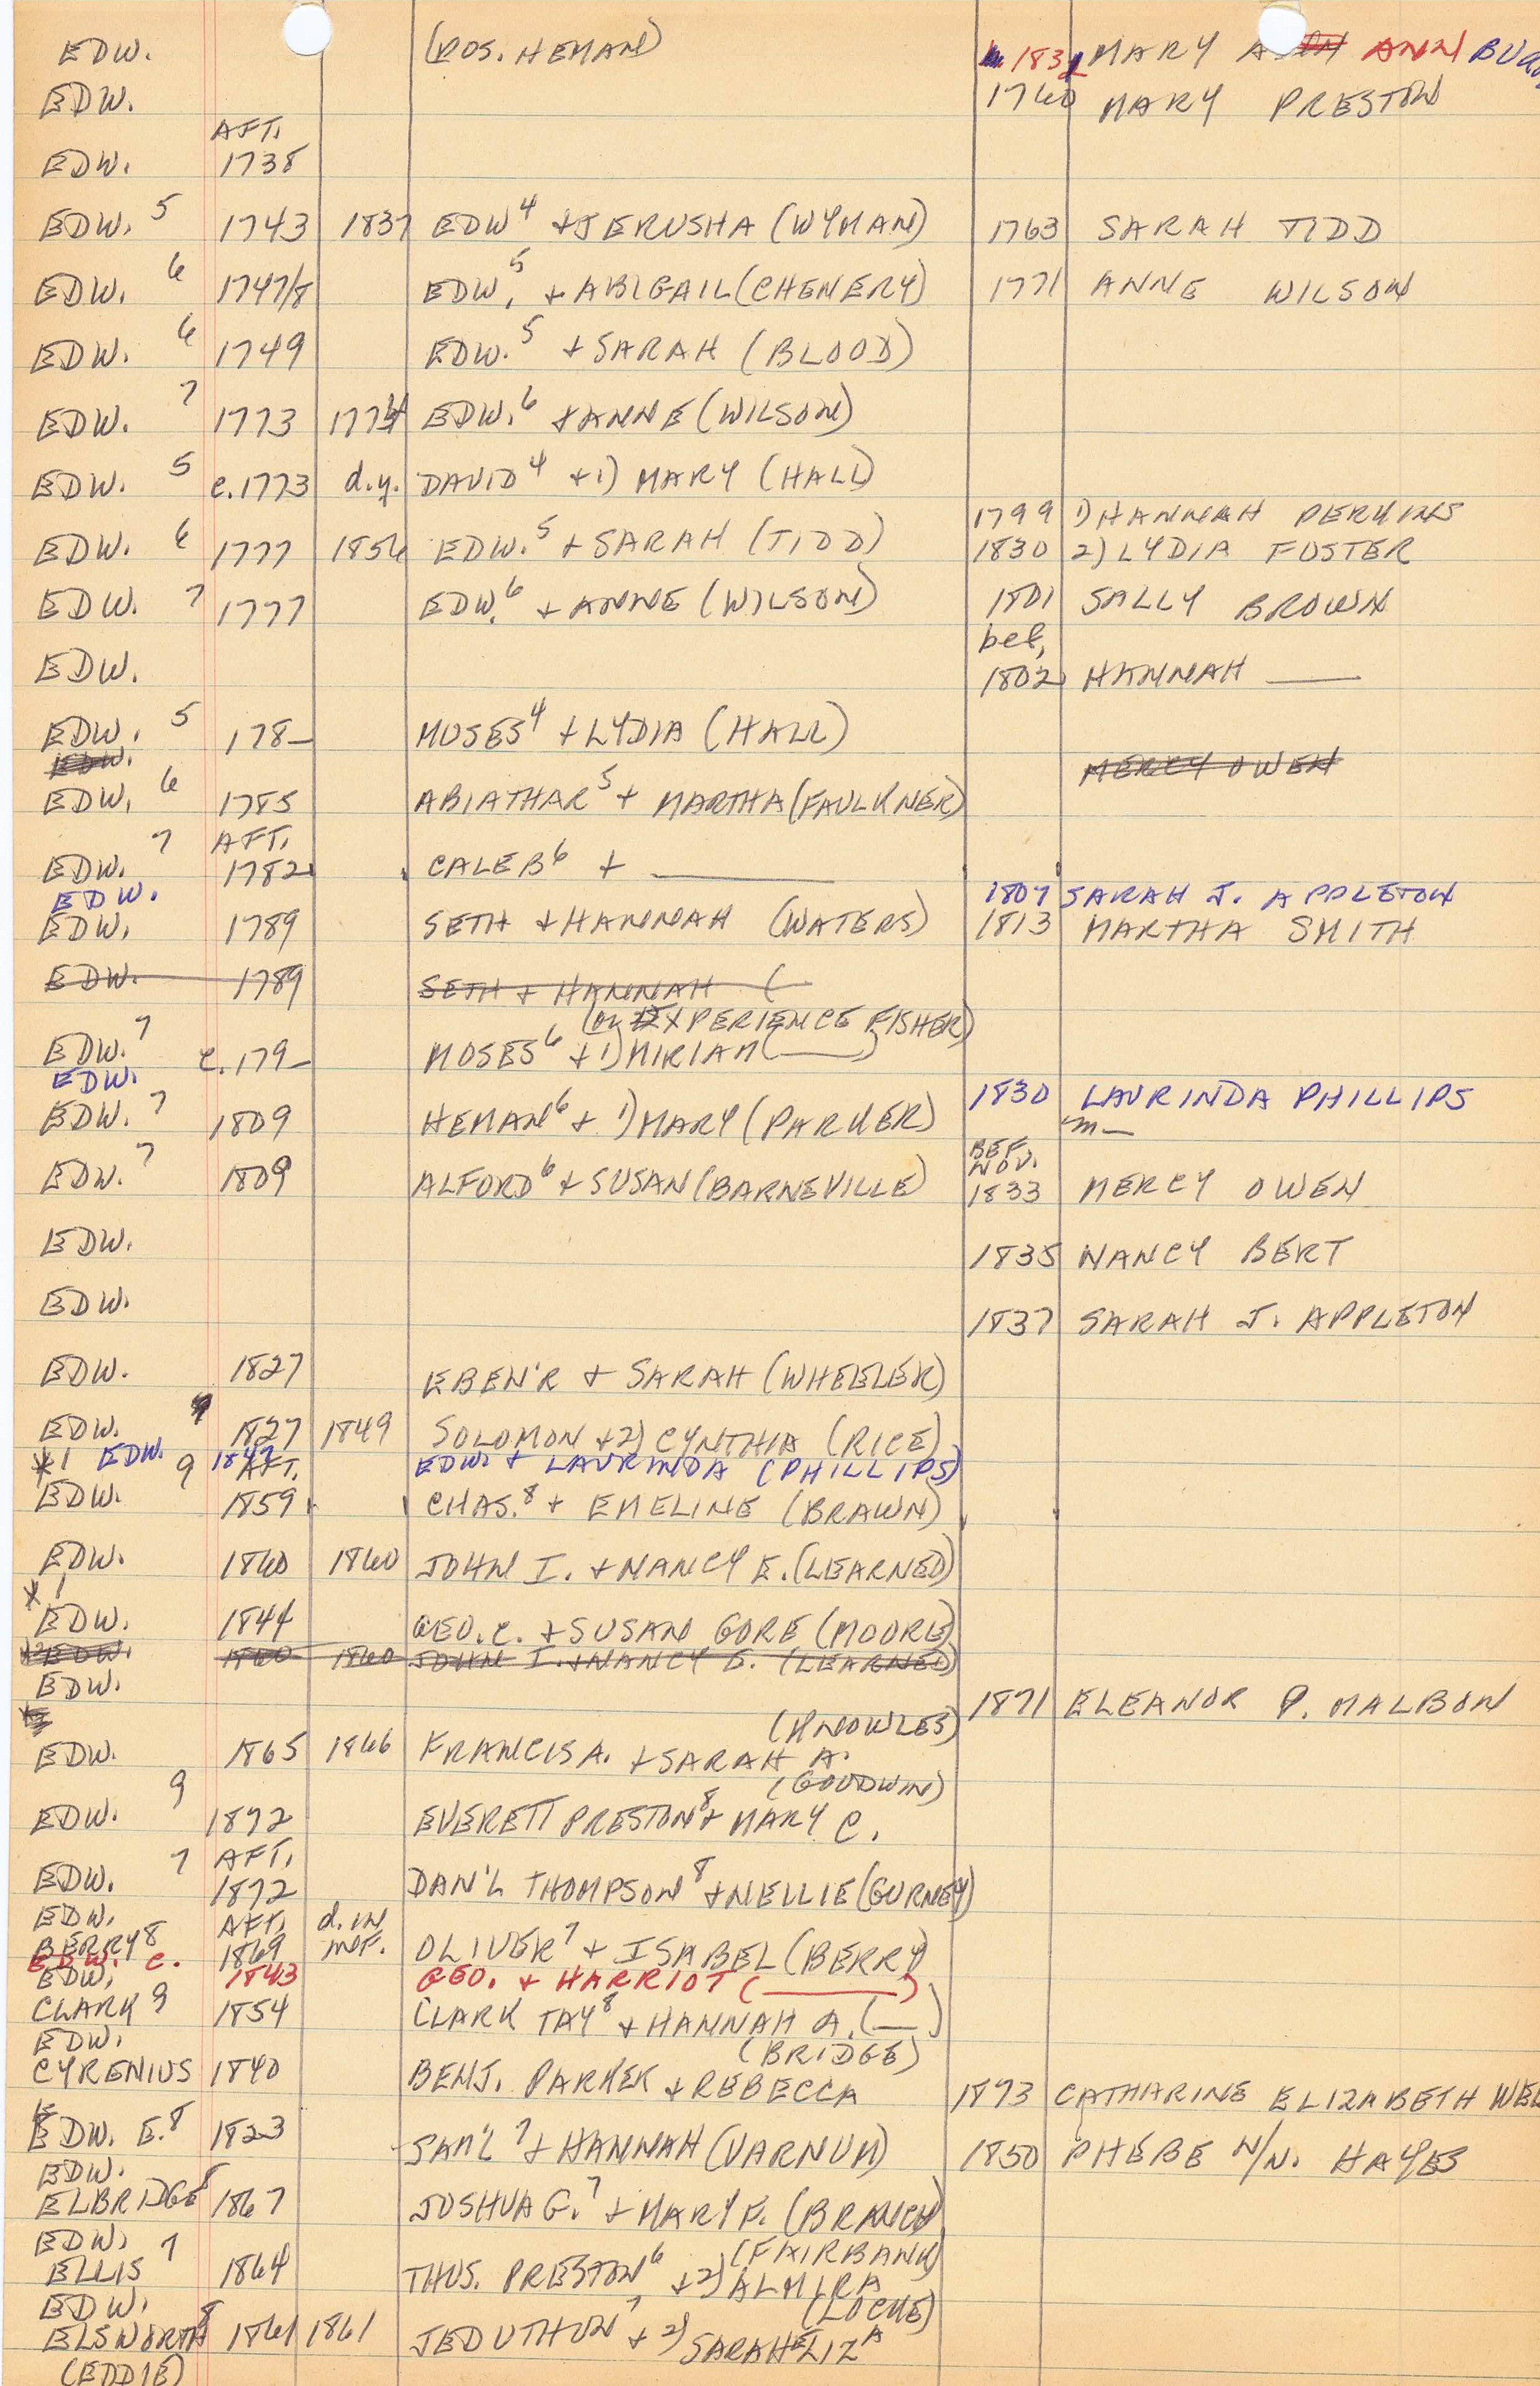 EDW. (POS. HEMAN) 1832 MARY ANN
EDW. 1760 MARY PRESTON
AFT.
EDW. 1738
EDW. 5 1743 1837 EDW 4 + JERUSHA (WYMAN) 1763 SARAH TIDD
EDW. 6 1747/8 EDW. 5 + ABIGAIL (CHENERY) 1771 ANNE WILSON
EDW. 6 1749 EDW. 5 + SARAH (BLOOD)
EDW. 7 1773 EDW. 6 + ANNE (WILSON)
EDW. 5 c. 1773 d.y. DAVID 4 + 1) MARY (HALL)
1799 1) HANNAH PERKINS
EDW. 6 1777 1856 EDW. 5 + SARAH (TIDD) 1830 2) LYDIA FOSTER
EDW. 7 1777 EDW. 6 + ANNE (WILSON) 1801 SALLY BROWN
bef,
EDW. 1802 HANNAH ——
EDW. 5 178– MOSES 4 + LYDIA (HALL)
EDW. MERCY OWEN
EDW. 6 1785 ABIATHAR 5 + MARTHA (FAULKNER)
7 AFT.
EDW. 1782 CALEB 6 + ————
EDW. 1807 SARAH J. APPLETON
EDW. 1789 SETH + HANNAH (WATERS) 1813 MARTHA SMITH
EDW. 1789 SETH + HANNAH (
(or EXPERIENCE FISHER)
EDW. 7 c. 179– MOSES 6 + 1) MIRIAM (——)
EDW. 1830 LAURINDA PHILLIPS
EDW. 7 1809 HEMAN 6 + 1) MARY (PARKER) m–
BEF. NOV.
EDW. 7 1809 ALFORD 6 + SUSAN (BARNEVILLE) 1833 MERCY OWEN
EDW. 1835 NANCY BERT
EDW. 1837 SARAH J. APPLETON
EDW. 1827 EBEN'R + SARAH (WHEELER)
EDW. 1827 1849 SOLOMON + 2) CYNTHIA (RICE)
*1 EDW. EDW. + LAURINDA (PHILLIPS)
9 AFT.
EDW. 1859 CHAS. 8 + EMELINE (BRAWN)
EDW. 1860 1860 JOHN I. + NANCY E. (LEARNED)
*1
EDW. 1844 GEO. C. + SUSAN GORE (MOORE)
EDW. 1860 1860 JOHN I. + NANCY E. (LEARNED)
EDW. 1871 ELEANOR P. MALBON
(KNOWLES)
EDW. 1865 1866 FRANCIS A. + SARAH A.
9 (GOODWIN)
EDW. 1892 EVERETT PRESTON 8 + MARY C.
7 AFT.
EDW. 1872 DAN'L THOMPSON 8 + NELLIE (GURNEY)
EDW. AFT. d. in
BERRY 8 1869 inf. OLIVER 7 + ISABEL (BERRY)
EDW. C. 1843 GEO. + HARRIOT (————)
EDW.
CLARK 9 1854 CLARK TAY 8 + HANNAH A. (—)
EDW. (BRIDGE)
CYRENIUS 1840 BENJ. PARKER + REBECCA 1873 CATHARINE ELIZABETH
EDW. E. 8 1823 SAM'L 7 + HANNAH (VARNUM) 1850 PHEBE N/N. HAYES
EDW.
ELBRIDGE 8 1867 JOSHUA G. 7 + MARY F. (BRANCH)
EDW. (FAIRBANK)
ELLIS 7 1864 THOS. PRESTON 6 + 2) ALMIRA
EDW. (LOCKE)
ELSWORTH 8 1861 1861 JEDUTHUN 7 + 2) SARAH ELIZA
(EDDIE)